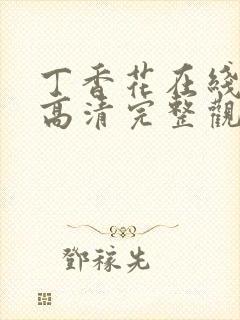 丁香花在綫
高清完整觀
鄧稼先